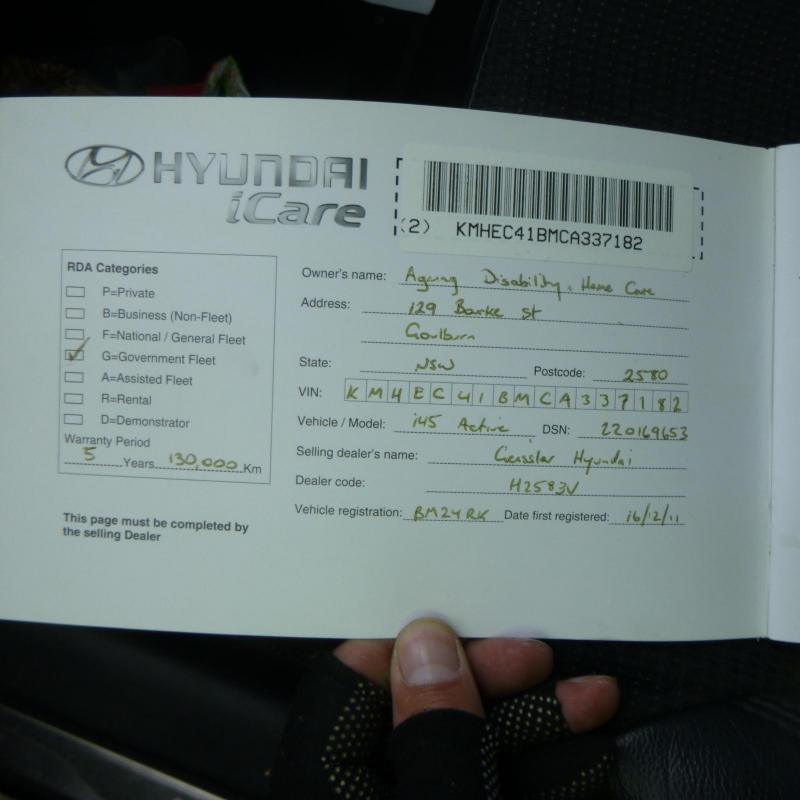 HYUNDAI
iCare
(2) KMHEC41BMCA337182
RDA Categories
P=Private
B=Business (Non-Fleet)
F=National / General Fleet
G=Government Fleet
A=Assisted Fleet
R=Rental
D=Demonstrator
Warranty Period
5 Years 130,000 Km
This page must be completed by
the selling Dealer
Owner's name: Ageing Disability, Home Care
Address: 129 Bourke st
Goulburn
State: NSW Postcode: 2580
VIN: KMHEC41BMCA337182
Vehicle / Model: i45 Active DSN: 220169653
Selling dealer's name: Geissler Hyundai
Dealer code: H2583V
Vehicle registration: BM24RK Date first registered: 16/12/11